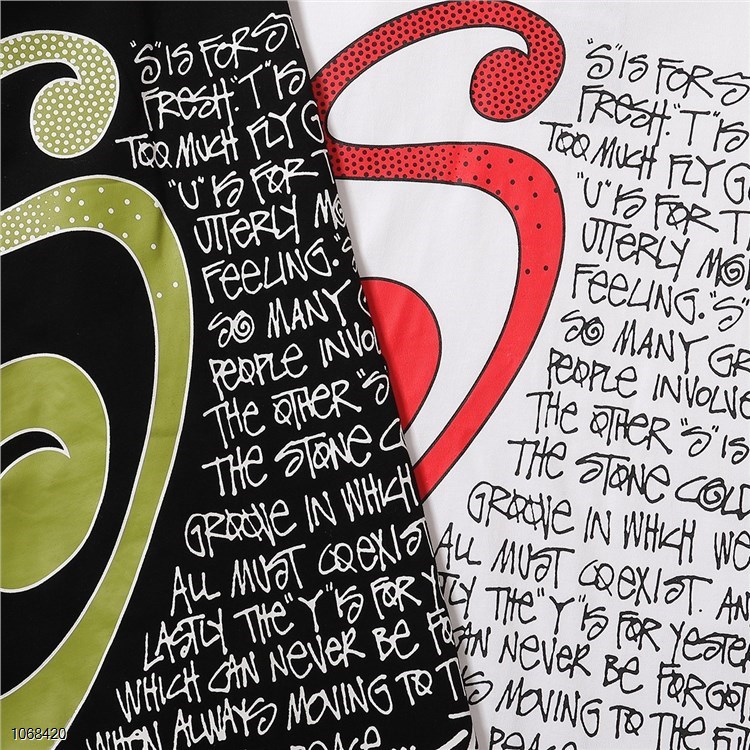 "S" IS FOR ST
FRESH. "T" IS
TOO MUCH FLY G
"U" IS FOR T
UTTERLY MO
FEELING. "S
SO MANY G
PEOPLE INVOL
THE OTHER "S
THE STONE C
GROOVE IN WHICH
ALL MUST COEXIST
LASTLY THE "Y" IS FOR Y
WHICH CAN NEVER BE FO
WHEN ALWAYS MOVING TO T
PEACE
"S" IS FOR S
FRESH. "T" IS
TOO MUCH FLY G
"U" IS FOR T
UTTERLY MO
FEELING. "S"
SO MANY GR
PEOPLE INVOLVE
THE OTHER "S" IS
THE STONE COLD
GROOVE IN WHICH WE
ALL MUST COEXIST. AN
LY THE "Y" IS FOR YESTER
AN NEVER BE FORGOT
S MOVING TO THE FU
PEACE
1068420